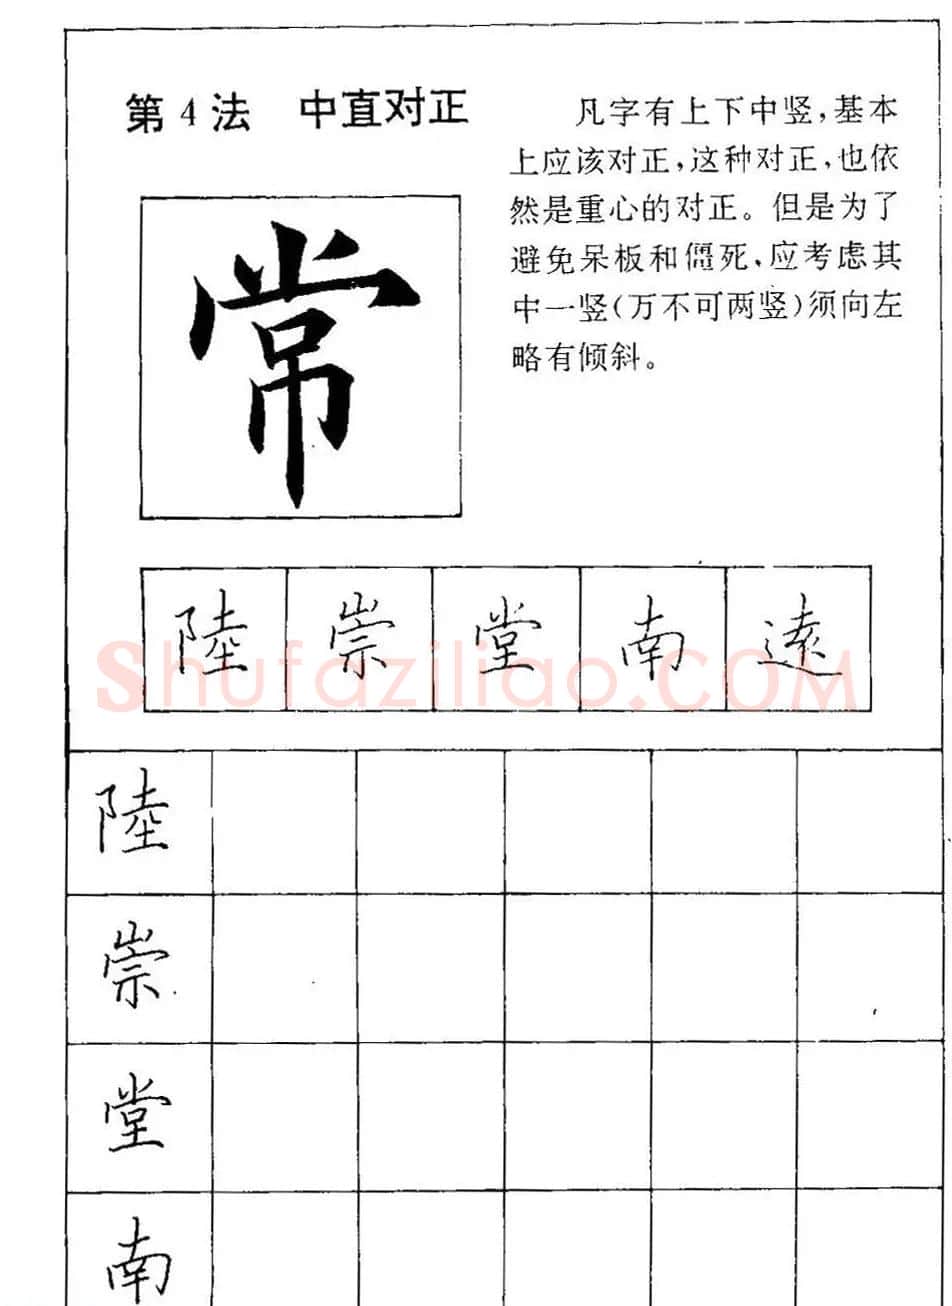 第4法 中直对正
凡字有上下中竖,基本
上应该对正,这种对正,也依
然是重心的对正。但是为了
避免呆板和僵死,应考虑其
中一竖(万不可两竖)须向左
略有倾斜。
常
陸 崇 堂 南 遠
shufaziliao.COM
陸
崇
堂
南